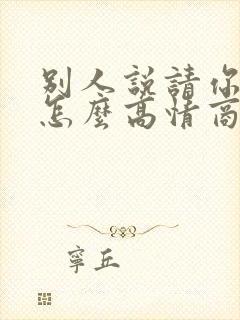 別人說請你
怎麼高情商
寧丘